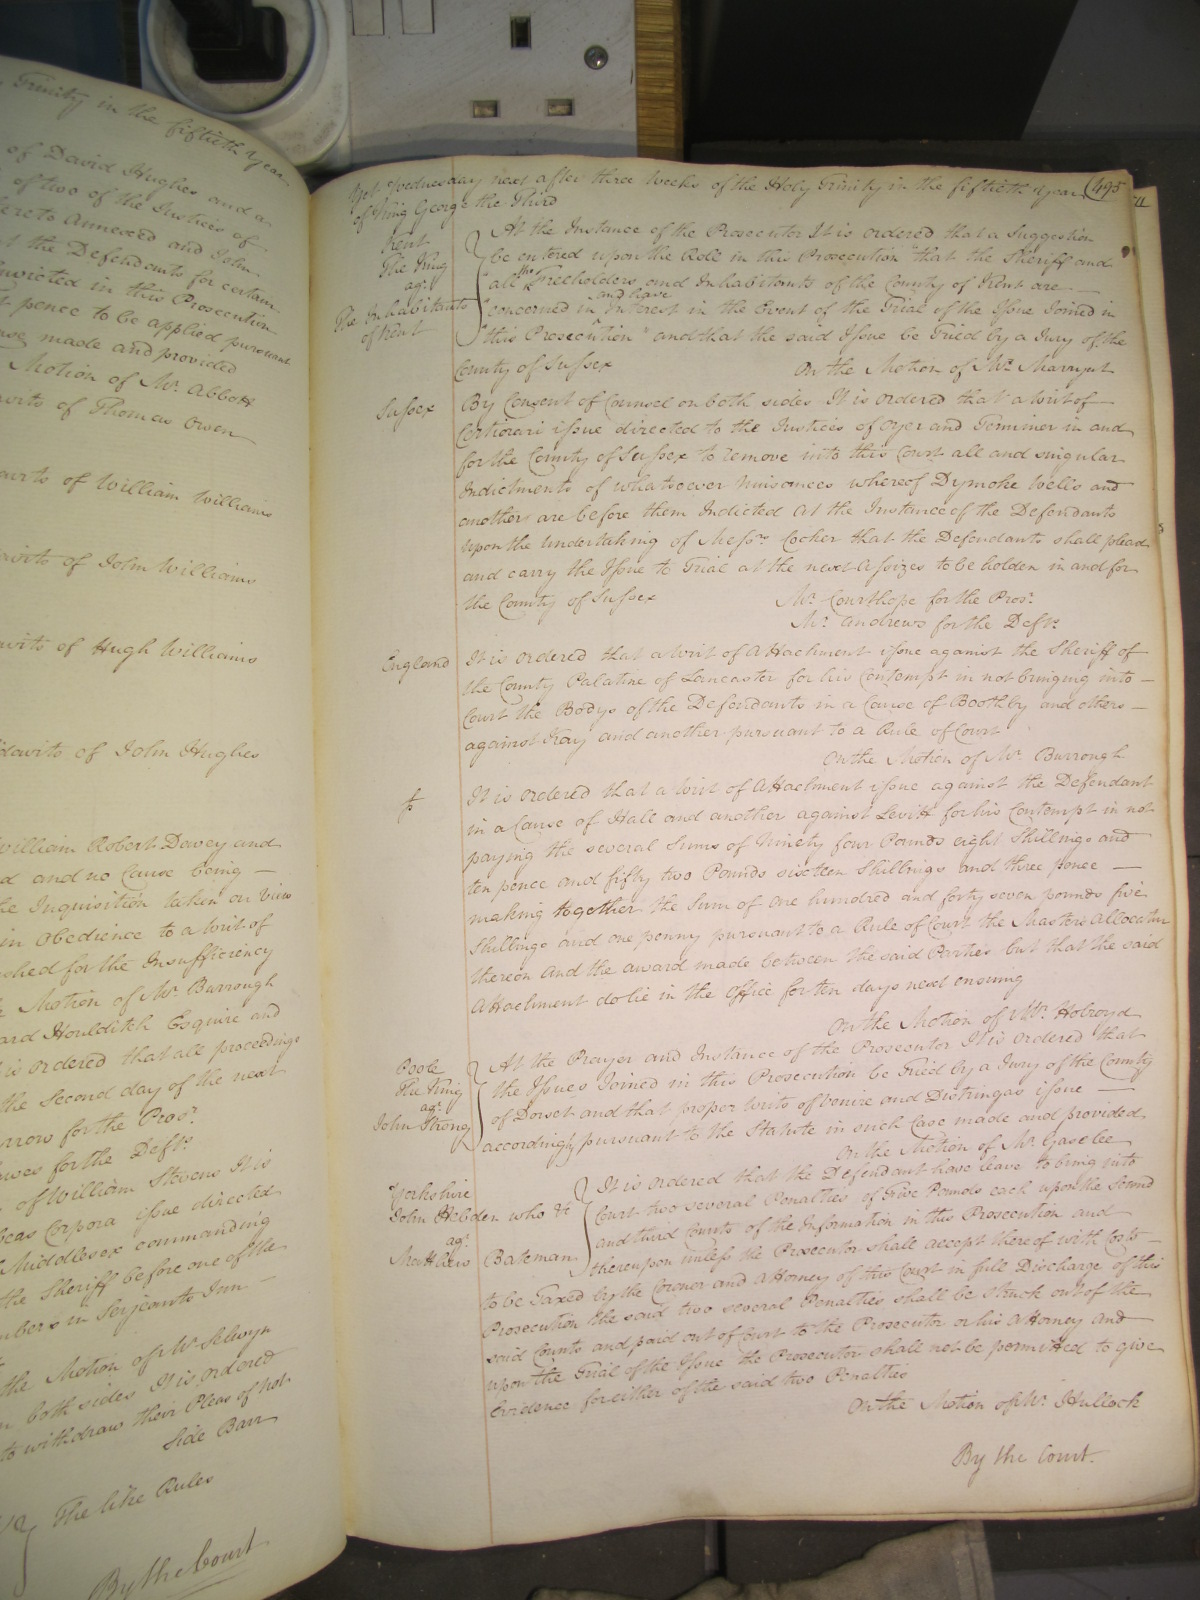 Trinity in the fiftieth Year
of David Hughes and a
of two of the Justices of
hereto Annexed and John
the Defendants for certain
Convicted in this Prosecution
pence to be applied pursuant
made and provided
Motion of Mr. Abbott
of Thomas Owen
of William Williams
of John Williams
of Hugh Williams
of John Hughes
William Robert Dawey and
and no Cause being
the Inquisition taken on View
in Obedience to a Writ of
for the Insufficiency
Motion of Mr. Burrough
Houlditch Esquire and
is ordered that all proceedings
the second day of the next
for the Prosr.
for the Defts.
of William Stevens It is
Corpora issue directed
Middlesex commanding
the Sheriff before one of the
in Serjeants Inn
the Motion of Mr. Selwyn
both sides It is ordered
to withdraw their Pleas of Not
Side Barr
The like Rules
By the Court
Yet Wednesday next after three Weeks of the Holy Trinity in the fiftieth Year 495
of King George the Third
Kent
The King
agt.
The Inhabitants
of Kent
At the Instance of the Prosecutor It is ordered that a Suggestion
be entered upon the Role in this Prosecution "that the Sheriff and
"all the Freeholders and Inhabitants of the County of Kent are
"concerned in and have interest in the Event of the Trial of the Issue Joined in
"this Prosecution" and that the said Issue be Tried by a Jury of the
County of Sussex On the Motion of Mr. Marryat
Sussex
By Consent of Counsel on both sides It is ordered that a Writ of
Certiorari issue directed to the Justices of Oyer and Terminer in and
for the County of Sussex to remove into this Court all and singular
Indictments of whatsoever Nuisances whereof Dymoke Wells and
another are before them Indicted At the Instance of the Defendants
Upon the Undertaking of Messrs. Cocker that the Defendants shall plead
and carry the Issue to Trial at the next Assizes to be holden in and for
the County of Sussex Mr. Courthope for the Prosr.
Mr. Andrews for the Defts.
England
It is ordered that a Writ of Attachment issue against the Sheriff of
the County Palatine of Lancaster for his Contempt in not bringing into
Court the Bodys of the Defendants in a Cause of Boothby and others
against Kay and another pursuant to a Rule of Court
On the Motion of Mr. Burrough
It is ordered that a Writ of Attachment issue against the Defendant
in a Cause of Hall and another against Levitt for his Contempt in not
paying the several Sums of Ninety four Pounds eight Shillings and
ten pence and fifty two Pounds sixteen Shillings and three pence
making together the Sum of One hundred and forty seven pounds five
Shillings and one penny pursuant to a Rule of Court the Masters Allocatur
thereon And the award made between the said Parties but that the said
Attachment do lie in the Office for ten days next ensuing
On the Motion of Mr. Holroyd
Poole
The King
agt.
John Strong
At the Prayer and Instance of the Prosecutor It is ordered that
the Issues Joined in this Prosecution be Tried by a Jury of the County
of Dorset and that proper Writs of Venire and Distringas issue
accordingly pursuant to the Statute in such Case made and provided
On the Motion of Mr. Gaselee
Yorkshire
John Hebden who &c
agt.
Matthew Bateman
It is ordered that the Defendant have leave to bring into
Court two several Penalties of Five Pounds each upon the second
and third Counts of the Information in this Prosecution and
thereupon unless the Prosecutor shall accept thereof with Costs
to be Taxed by the Coroner and Attorney of this Court in full Discharge of this
Prosecution the said two several Penalties shall be struck out of the
said Counts and paid out of Court to the Prosecutor or his Attorney and
upon the Trial of the Issue the Prosecutor shall not be permitted to give
Evidence for either of the said two Penalties
On the Motion of Mr. Hullock
By the Court.